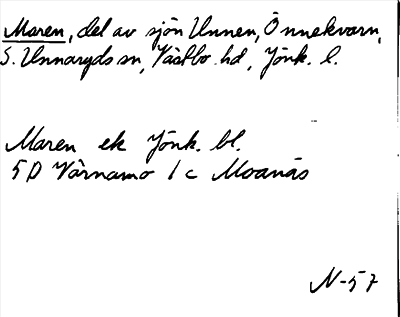 Maren, del av sjön Unnen, Önnekvarn,
S. Unnaryds sn, Västbo hd, Jönk. l.
Maren ek Jönk. bl.
5D Värnamo 1c Moanäs
N-57